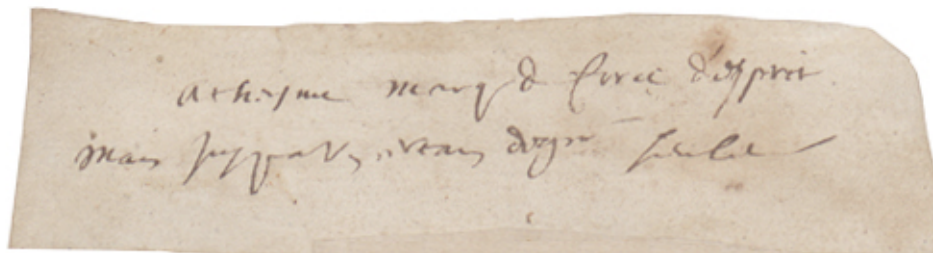 Atheisme marq de force d'esprit
mais jusqu'a un certain degré seulem